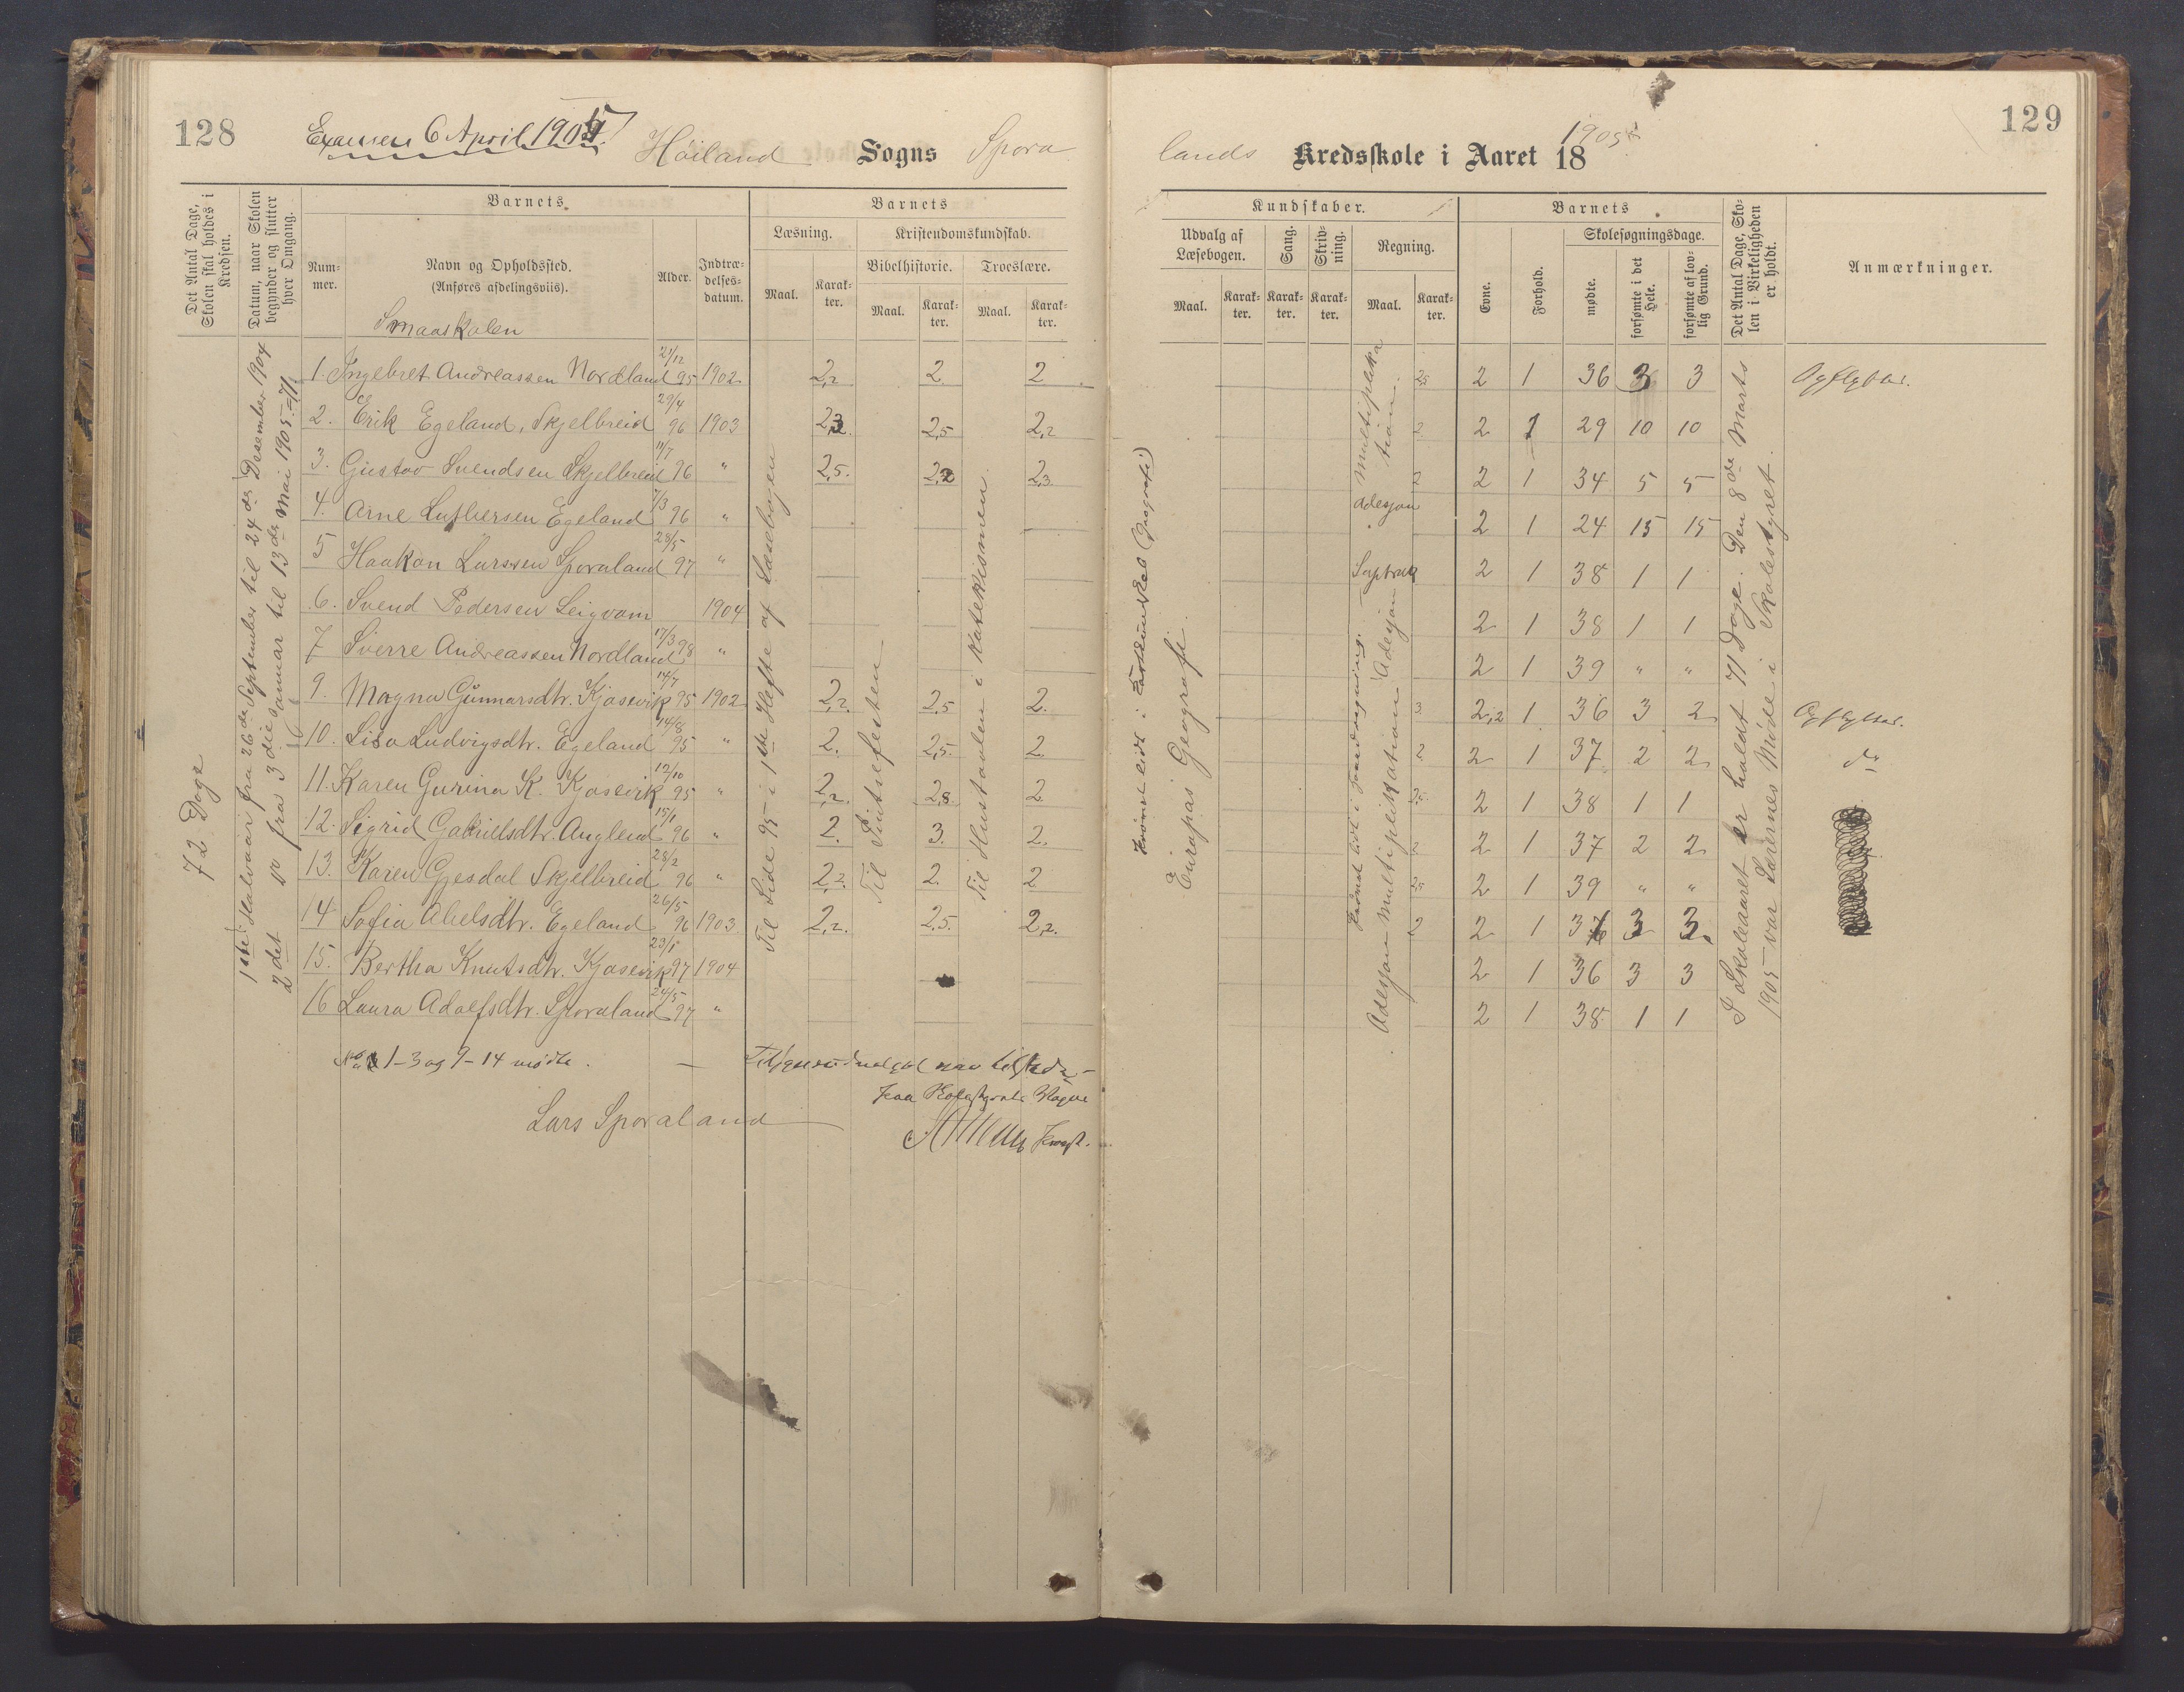 128
Examen 6 April 1905.
Høiland Sogns Spora
lands Kredsskole i Aaret 18 1905
129
Det Antal Dage, Skolen skal holdes i Kredsen.
Datum, naar Skolen begynder og slutter hver Omgang.
Barnets
Num-mer.
Navn og Opholdssted.
(Anføres afdelingsviis).
Smaaskolen
Alder.
Indtræ-delses-datum.
Barnets
Læsning.
Maal.
Karak-ter.
Kristendomskundskab.
Bibelhistorie.
Maal.
Karak-ter.
Troeslære.
Maal.
Karak-ter.
Kundskaber.
Udvalg af Læsebogen.
Maal.
Karak-ter.
Sang.
Karak-ter.
Skriv-ning.
Karak-ter.
Regning.
Maal.
Karak-ter.
Barnets
Evne.
Forhold.
Skolesøgningsdage.
mødte.
forsømte i det Hele.
forsømte af lov-lig Grund.
Det Antal Dage, Sko-len i Virkeligheden er holdt.
Anmærkninger.
72 Dage
1ste Halvaar fra 26de September til 24de Desember 1904
2det do fra 3die Januar til 13de Mai 1905. = 71.
1. Ingebret Andreassen Nordland 21/12 95 1902 2,2 2 2 2,5 2 1 36 3 3 Opflyttet.
2. Erik Egeland, Skjelbreid 29/4 96 1903 2,3 2,5 2,2 2 2 1 29 10 10
3. Gustav Svendsen Skjelbreid 11/7 96 " 2,5. 2,2 2,3 2 1 34 5 5
4. Arne Luthersen Egeland 7/3 96 " 2 1 24 15 15
5 Haakon Larssen Sporaland 28/5 97 " 2 1 38 1 1
6. Svend Pedersen Leigvam 1904 2 1 38 1 1
7 Sverre Andreassen Nordland 17/3 98 " 2 1 39 " "
9. Magna Gunnarsdtr. Kjosevik 14/7 95 1902 2,2. 2,5 2. 3 2,2 1 36 3 2 Opflyttet.
10. Lisa Ludvigsdtr. Egeland 14/8 95 " 2. 2,5. 2 2 2 1 37 2 2 do
11. Karen Gurina K. Kjosevik 12/10 95 " 2,2. 2,8. 2 2,5 2 1 38 1 1
12. Sigrid Gabrielsdtr. Anglend 15/1 96 " 2. 3. 2. 2 2 1 37 2 2
13. Karen Gjesdal Skjelbreid 28/2 96 " 2,2. 2. 2 2,5 2 1 39 " "
14 Sofia Abelsdtr. Egeland 26/5 96 1903 2,2. 2,5. 2,2. 2 2 1 36 3 3.
15. Bertha Knutsdtr. Kjosevik 23/1 97 1904 2 1 36 3 3
16 Laura Adolfsdtr. Sporaland 24/5 97 " 2 1 38 1 1
Til Side 95 i 1ste Hefte af Læsebogen
Til Pintsefesten
Til Hustavlen i Katekismen.
Europas Geografi.
Multiplika tion.
Adesjon
Suptrak
Adesjon Multiplikation Adesjon
I Skoleaaret er holdt 71 Dage. Den 8de Marts 1905 var Lærernes Møde i Skolestyret.
No 1-3 og 9-14 mødte. —
Lars Sporaland